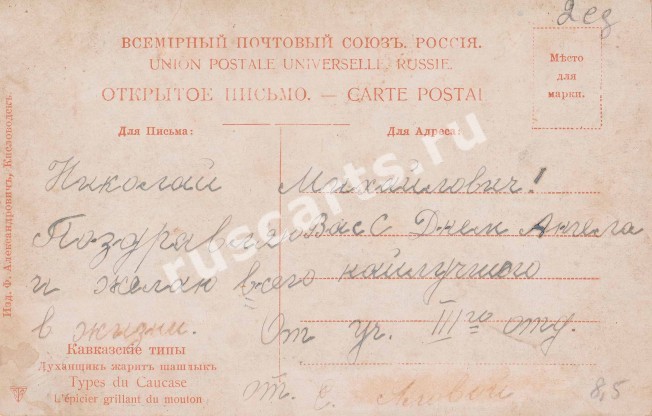 2ед
ВСЕМІРНЫЙ ПОЧТОВЫЙ СОЮЗЪ. РОССІЯ.
UNION POSTALE UNIVERSELLE. RUSSIE.
ОТКРЫТОЕ ПИСЬМО. — CARTE POSTAL
Мѣсто
для
марки.
Для Письма:
Для Адреса:
Николай Михайлович!
Поздравляю Вас С Днем Ангела
и желаю всего наилучшего
в жизни. От уч. III го отд.
от.
8,5
Кавказскіе типы
Духанщикъ жаритъ шашлыкъ
Types du Caucase
L'épicier grillant du mouton
Изд. Ф. Александровичъ, Кисловодскъ.
ruscarts.ru